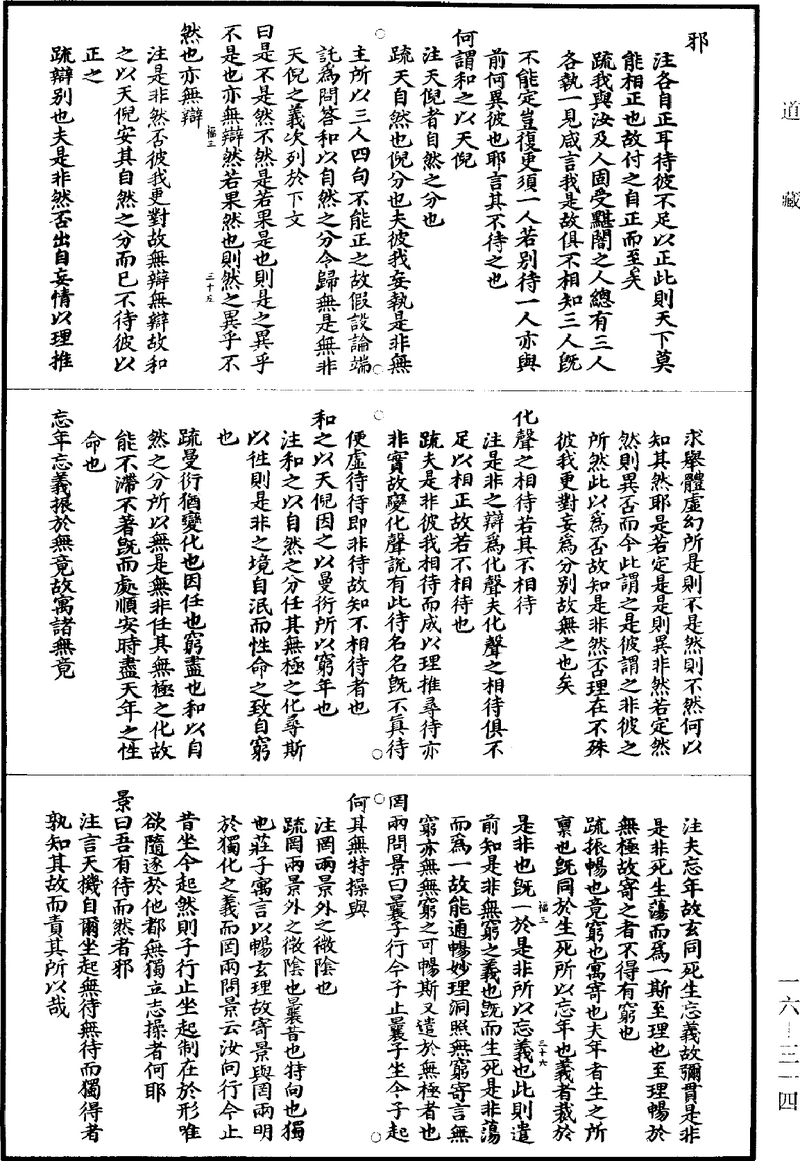 道藏
邪
注各自正耳待彼不足以正此則天下莫
能相正也故付之自正而至矣
疏我與汝及人固受黮闇之人總有三人
各執一見咸言我是故俱不相知三人既
不能定豈復更須一人若別待一人亦與
前何異彼也耶言其不待之也
何謂和之以天倪
注天倪者自然之分也
疏天自然也倪分也夫彼我妄執是非無
主所以三人四句不能正之故假設論端
託為問答和以自然之分令歸無是無非
天倪之義次列於下文
曰是不是然不然是若果是也則是之異乎
不是也亦無辯然若果然也則然之異乎不
福三
三十五
然也亦無辯
注是非然否彼我更對故無辯無辯故和
之以天倪安其自然之分而已不待彼以
正之
疏辯別也夫是非然否出自妄情以理推
求舉體虛幻所是則不是然則不然何以
知其然耶是若定是是則異非然若定然
然則異否而今此謂之是彼謂之非彼之
所然此以為否故知是非然否理在不殊
彼我更對妄為分別故無之也矣
化聲之相待若其不相待
注是非之辯為化聲夫化聲之相待俱不
足以相正故若不相待也
疏夫是非彼我相待而成以理推尋待亦
非實故變化聲說有此待名名既不真待
便虛待待即非待故知不相待者也
和之以天倪因之以曼衍所以窮年也
注和之以自然之分任其無極之化尋斯
以往則是非之境自泯而性命之致自窮
也
疏曼衍猶變化也因任也窮盡也和以自
然之分所以無是無非任其無極之化故
能不滯不著既而處順安時盡天年之性
命也
忘年忘義振於無竟故寓諸無竟
注夫忘年故玄同死生忘義故彌貫是非
是非死生蕩而為一斯至理也至理暢於
無極故寄之者不得有窮也
疏振暢也竟窮也寓寄也夫年者生之所
稟也既同於生死所以忘年也義者裁於
是非也既一於是非所以忘義也此則遣
福三
三十六
前知是非無窮之義也既而生死是非蕩
而為一故能通暢妙理洞照無窮寄言無
窮亦無無窮之可暢斯又遣於無極者也
罔兩問景曰曩子行今子止曩子坐今子起
何其無特操與
注罔兩景外之微陰也
疏罔兩景外之微陰也曩昔也特向也獨
也莊子寓言以暢玄理故寄景與罔兩明
於獨化之義而罔兩問景云汝向行今止
昔坐今起然則子行止坐起制在於形唯
欲隨逐於他都無獨立志操者何耶
景曰吾有待而然者邪
注言天機自爾坐起無待無待而獨得者
孰知其故而責其所以哉
一六－三一四